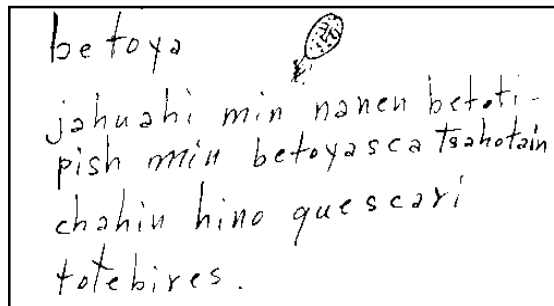 betoya
jahuahi min nanen betoti-
pish min betoyasca tsahotain
chahin hino quescari
totebires.